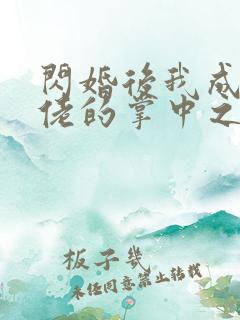 閃婚後我成
佬的掌中之
板子幾
未任同意禁止轉載